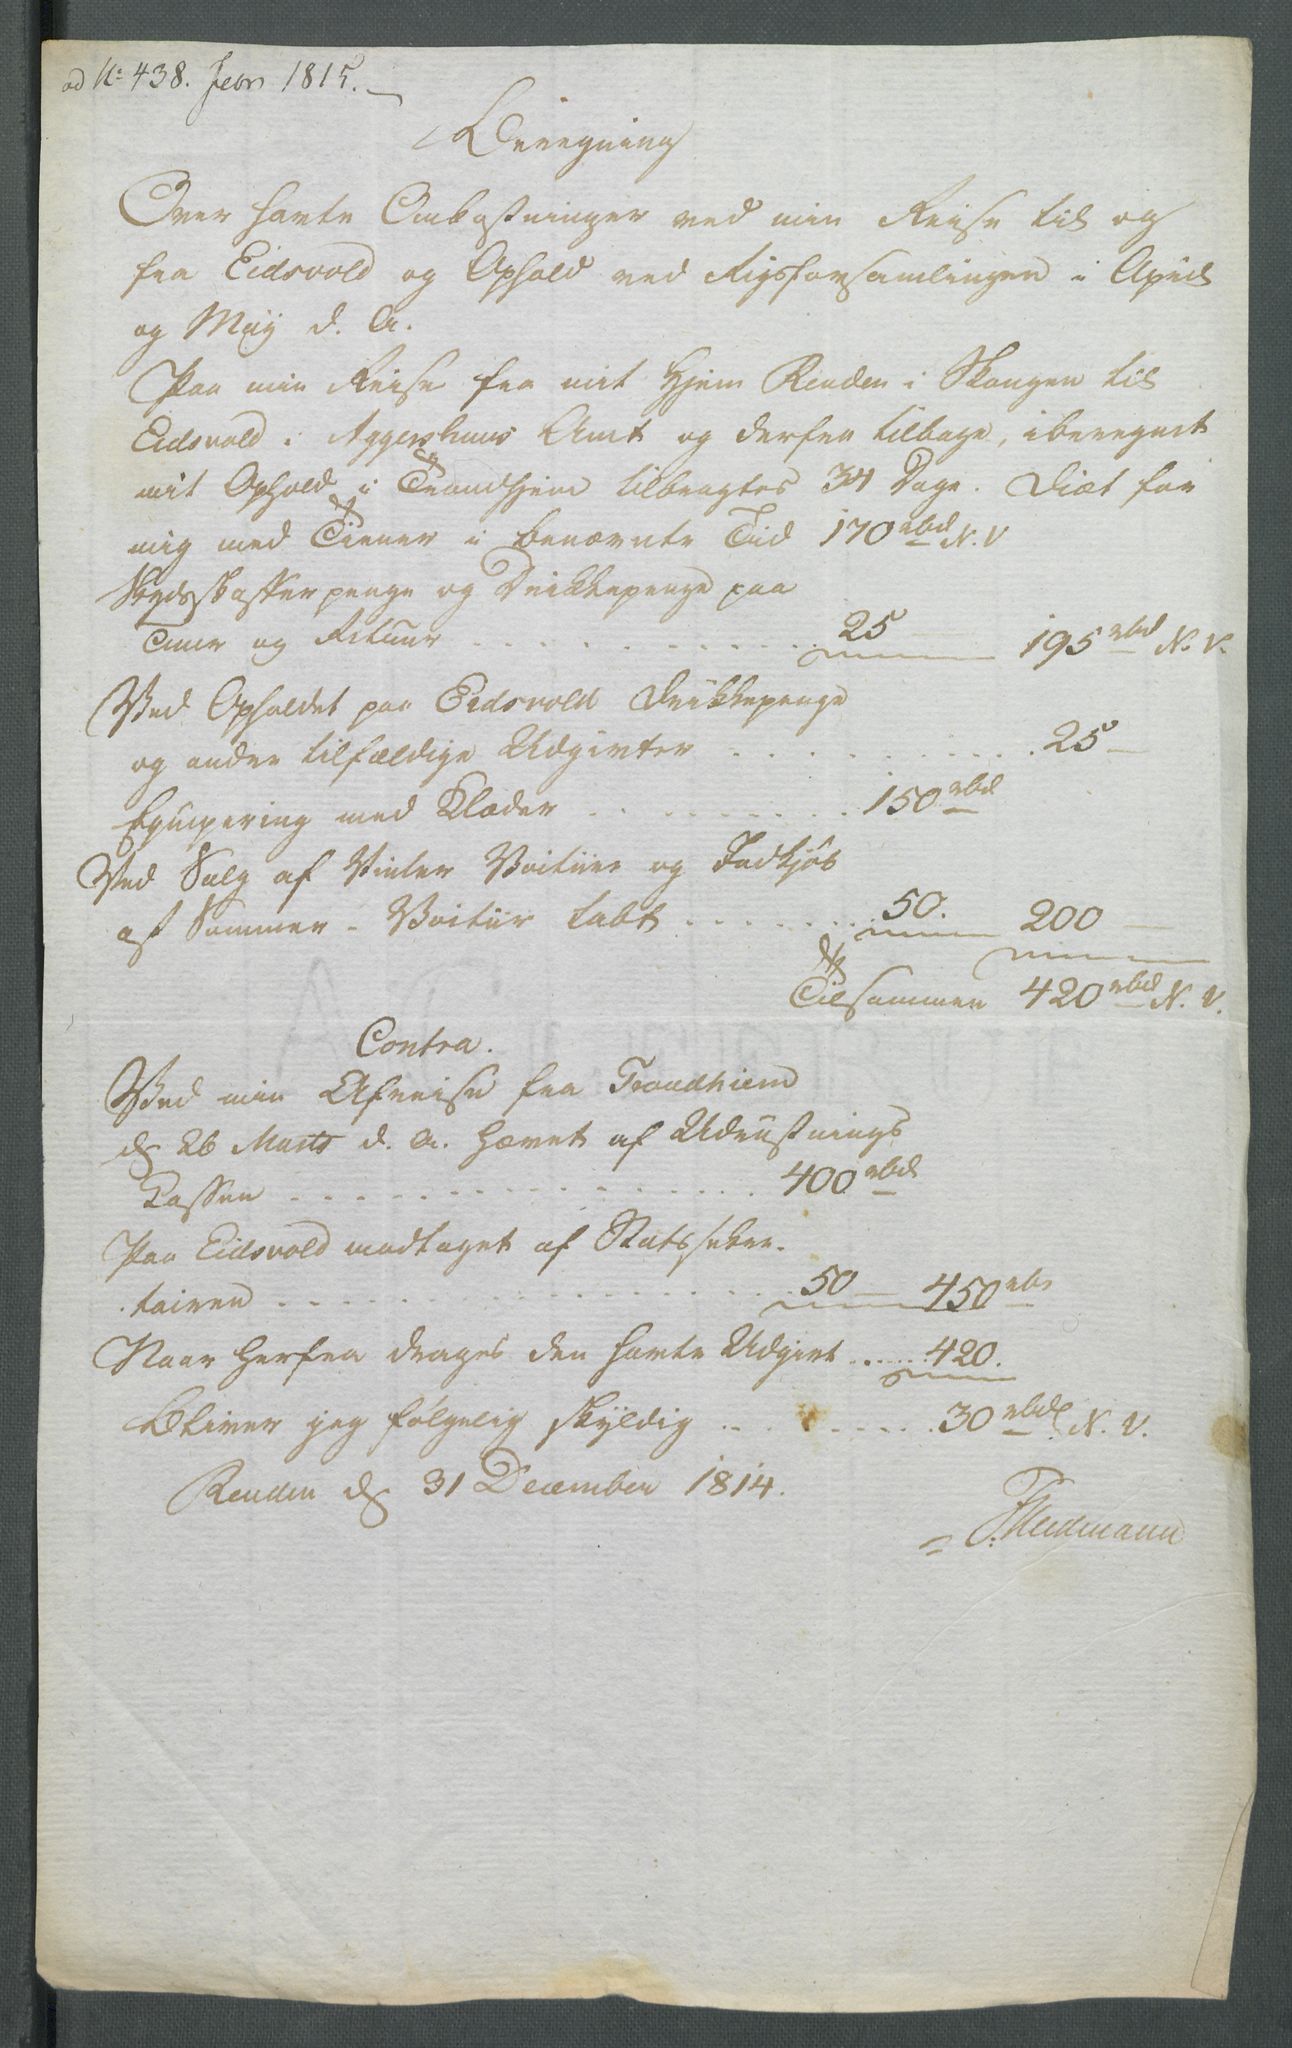 ad No 438. Febr 1815.
Beregning
Over havte Omkostninger ved min Reise til og
fra Eidsvold og Ophold ved Rigsforsamlingen i April
og May d. A.
Paa min Reise fra mit Hjem Reuden i Skougen til
Eidsvold i Aggershuus Amt og derfra tilbage, iberegnet
mit Ophold i Trondhjem tilbragtes 34 Dage. Diæt for
mig med Tiener i benævnte Tid 170 rbd N. V
Skydsskafferpenge og Drikkepenge paa
Tuur og Retuur . . . . . . . . . 25 195 rbd N. V.
Ved Opholdet paa Eidsvold Drikkepenge
og andre tilfældige Udgivter . . . . . . . . 25 —
Equipering med Klæder . . . . . . . 150 rbd
Ved Salg af Vinter Voituur og Indkjøb
af Sommer - Voituur tabt . . . . . . . 50. 200 —
Tilsammen 420 rbd N. V.
Contra.
Ved min Afreise fra Trondhiem
d 26 Marts d. A. hævet af Udrustnings
Kassen . . . . . . . . . . . 400 rbd
Paa Eidsvold modtaget af Statssekre-
tairen . . . . . . . . . . . . 50 — 450 rbd
Naar herfra drages den havte Udgivt . . . . . 420.
bliver jeg følgelig skyldig . . . . . . . 30 rbd N. V.
Reuden d 31 December 1814.